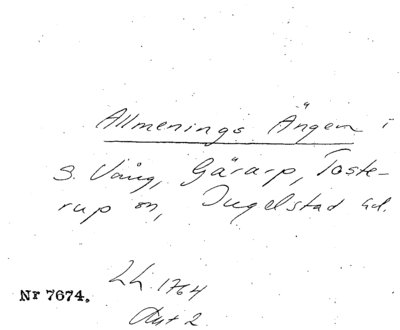 Allmenings Ängen i
S. Vång, Gärarp, Toste-
rup m, Ingelstad hd.
LL. 1764
Nr 7674.
Akt 2